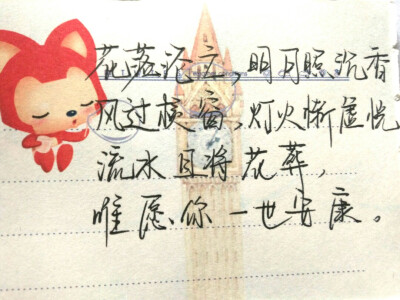 花落沧立，明月照沉香
风过横窗，灯火惭虚恍
流水且将花葬，
唯愿你一世安康。